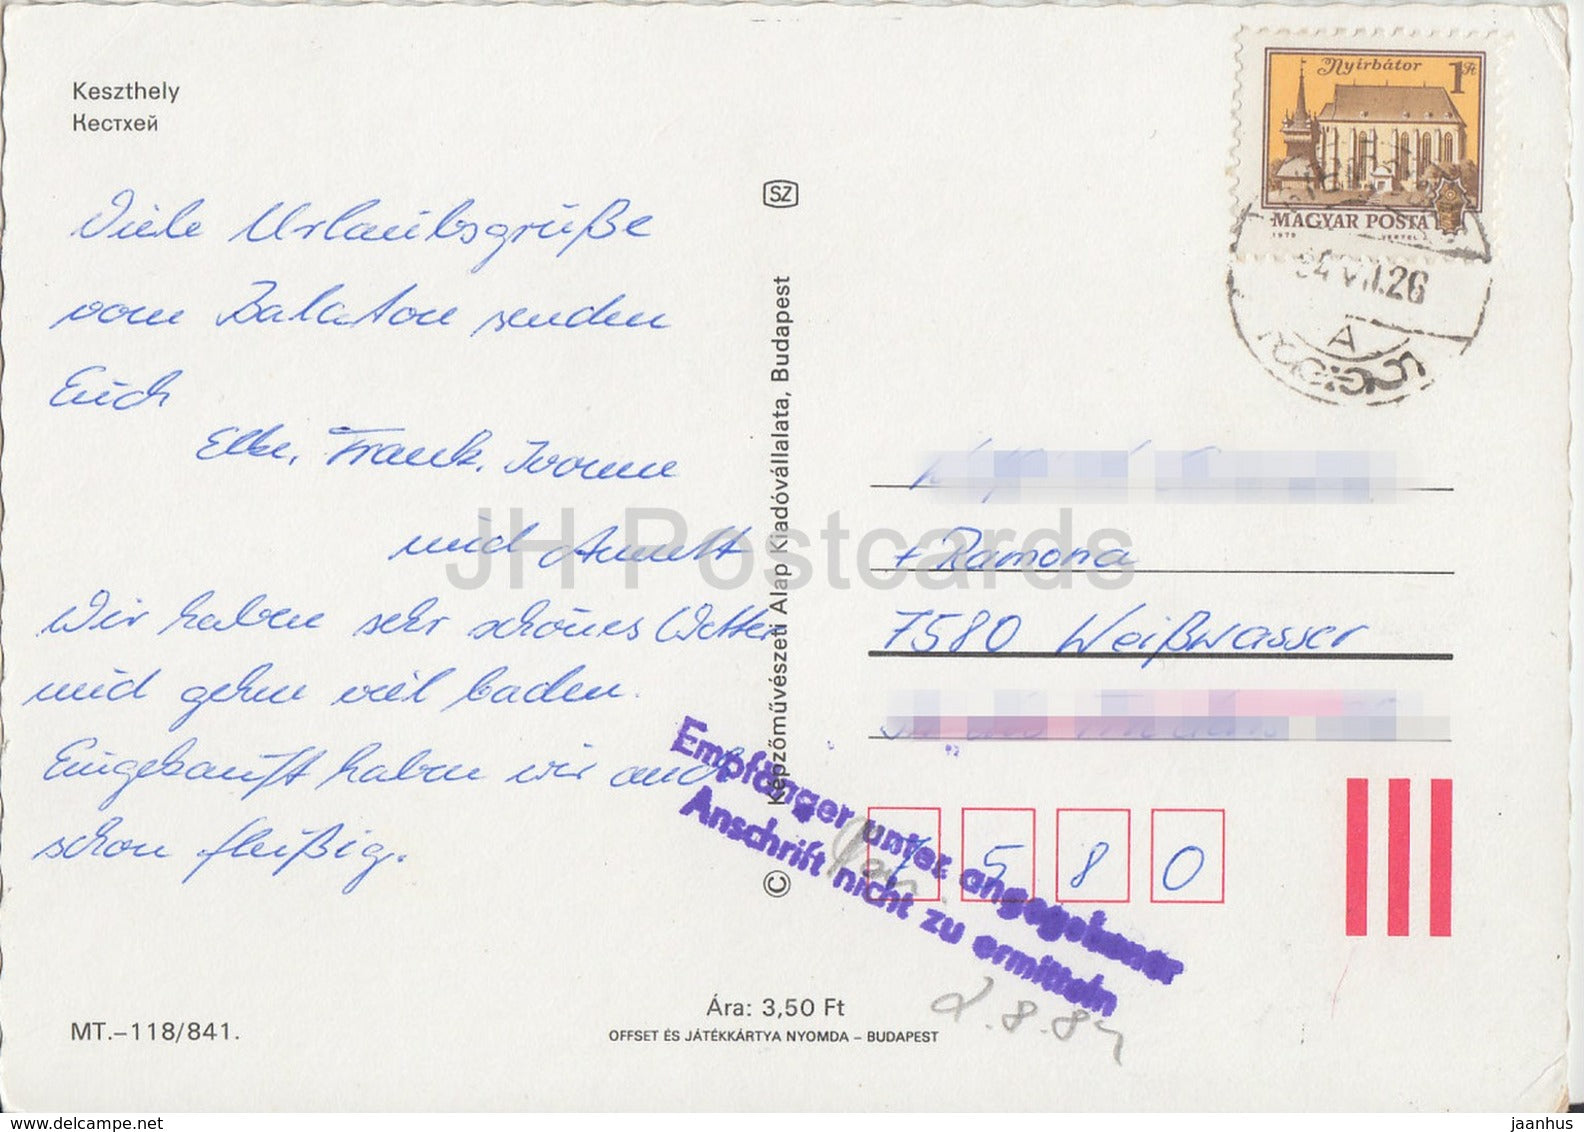 Keszthely
Кестхей
Viele Urlaubsgrüße
vom Balaton senden
Euch
Elke, Frank, Ivonne
und Annett
Wir haben sehr schönes Wetter
und gehen viel baden.
Eingekauft haben wir auch
schon fleißig.
MT.–118/841.
SZ
Képzőművészeti Alap Kiadóvállalata, Budapest
©
Ára: 3,50 Ft
OFFSET ÉS JÁTÉKKÁRTYA NYOMDA – BUDAPEST
Nyírbátor
1 Ft
MAGYAR POSTA
1979 VERTEL J.
84 VII.26
A
+ Ramona
7580 Weißwasser
7 5 8 0
Empfänger unter angegebener
Anschrift nicht zu ermitteln
2.8.84
JH Postcards
www.delcampe.net
jaanhus